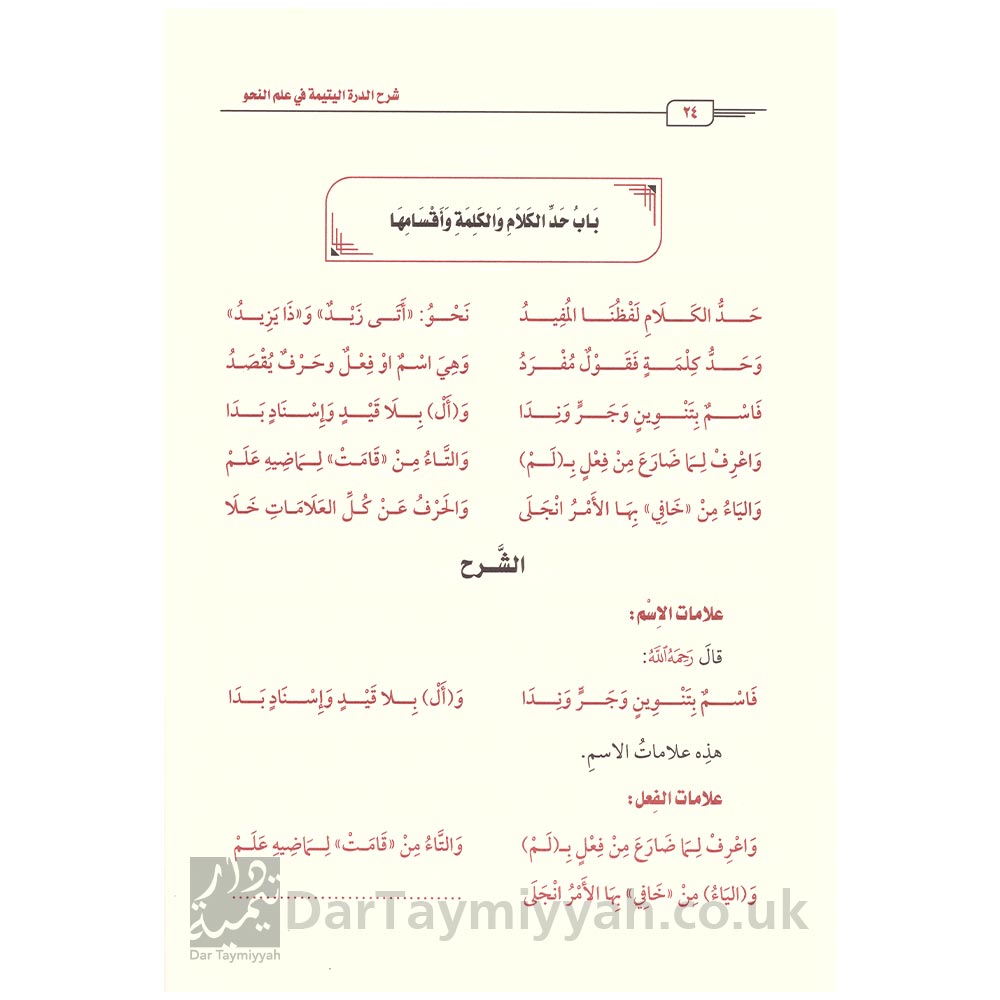 شرح الدرة اليتيمة في علم النحو
٢٤
بَابُ حَدِّ الكَلَامِ وَالكَلِمَةِ وَأَقْسَامِهَا
حَـــدُّ الكَـــلَامِ لَفْظُنَـــا المُفِيـــدُ نَحْـوُ: «أَتَـى زَيْـدٌ» وَ«ذَا يَزِيـدُ»
وَحَـــدُّ كِلْمَـــةٍ فَقَـــوْلٌ مُفْـــرَدُ وَهْيَ اسْمٌ اوْ فِعْلٌ وحَرْفٌ يُقْصَدُ
فَاسْـــمٌ بِتَنْـــوِينٍ وَجَـــرٍّ وَنِـــدَا وَ(أَلْ) بِـلَا قَيْـدٍ وَإِسْـنَادٍ بَـدَا
وَاعْرِفْ لِمَا ضَارَعَ مِنْ فِعْلٍ بِـ(لَمْ) وَالتَّاءُ مِنْ «قَامَتْ» لِـمَاضِيهِ عَلَمْ
وَاليَاءُ مِنْ «خَافِي» بِهَا الأَمْرُ انْجَلَى وَالحَرْفُ عَنْ كُلِّ العَلَامَاتِ خَلَا
الشَّـــرح
علامات الاِسْم:
قالَ رَحِمَهُ ٱللَّهُ:
فَاسْـــمٌ بِتَنْـــوِينٍ وَجَـــرٍّ وَنِـــدَا وَ(أَلْ) بِـلا قَيْـدٍ وَإِسْـنَادٍ بَـدَا
هذِه علاماتُ الاسمِ.
علامات الفِعل:
وَاعْرِفْ لِمَا ضَارَعَ مِنْ فِعْلٍ بِـ(لَمْ) وَالتَّاءُ مِنْ «قَامَتْ» لِـمَاضِيهِ عَلَمْ
وَ(اليَاءُ) مِنْ «خَافِي» بِهَا الأَمْرُ انْجَلَى ..................................
دار تيمية
Dar Taymiyyah
DarTaymiyyah.co.uk